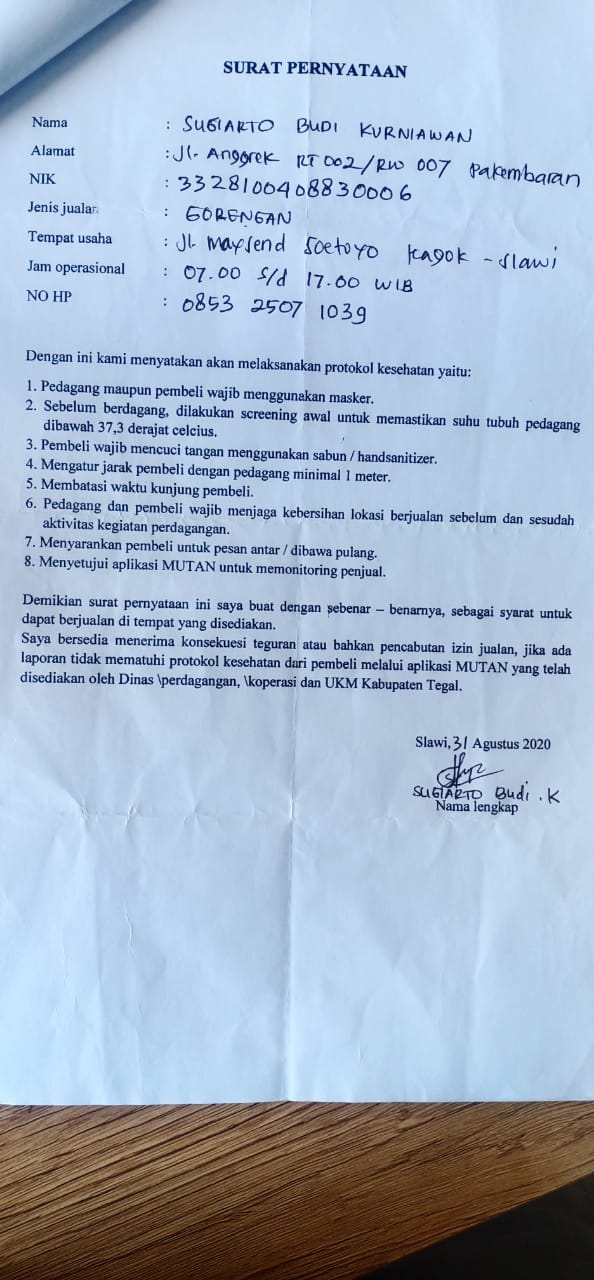 SURAT PERNYATAAN
Nama : SUGIARTO BUDI KURNIAWAN
Alamat : Jl. Anggrek RT 002/RW 007 Pakembaran
NIK : 3328100408830006
Jenis jualan : GORENGAN
Tempat usaha : Jl. Mayjend Soetoyo Kagok - Slawi
Jam operasional : 07.00 s/d 17.00 WIB
NO HP : 0853 2507 1039
Dengan ini kami menyatakan akan melaksanakan protokol kesehatan yaitu:
1. Pedagang maupun pembeli wajib menggunakan masker.
2. Sebelum berdagang, dilakukan screening awal untuk memastikan suhu tubuh pedagang
dibawah 37,3 derajat celcius.
3. Pembeli wajib mencuci tangan menggunakan sabun / handsanitizer.
4. Mengatur jarak pembeli dengan pedagang minimal 1 meter.
5. Membatasi waktu kunjung pembeli.
6. Pedagang dan pembeli wajib menjaga kebersihan lokasi berjualan sebelum dan sesudah
aktivitas kegiatan perdagangan.
7. Menyarankan pembeli untuk pesan antar / dibawa pulang.
8. Menyetujui aplikasi MUTAN untuk memonitoring penjual.
Demikian surat pernyataan ini saya buat dengan sebenar – benarnya, sebagai syarat untuk
dapat berjualan di tempat yang disediakan.
Saya bersedia menerima konsekuesi teguran atau bahkan pencabutan izin jualan, jika ada
laporan tidak mematuhi protokol kesehatan dari pembeli melalui aplikasi MUTAN yang telah
disediakan oleh Dinas \perdagangan, \koperasi dan UKM Kabupaten Tegal.
Slawi, 31 Agustus 2020
SUGIARTO Budi . K
Nama lengkap